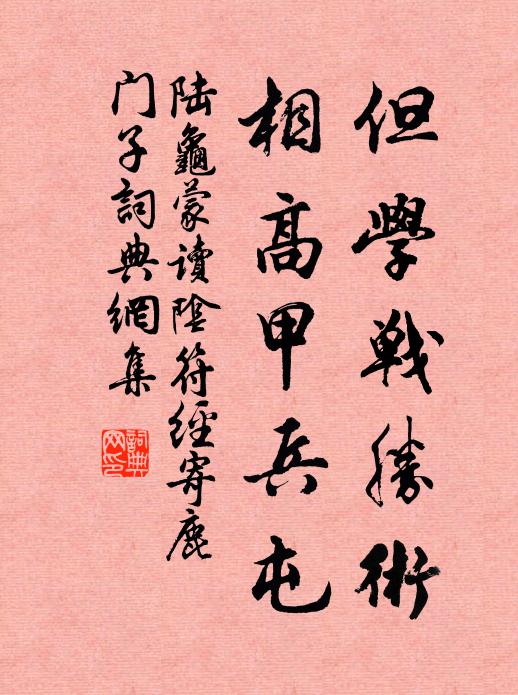 但學戰勝術
相高甲兵屯
陸龜蒙讀陰符經寄鹿
门子詞典網集
詞典
网印